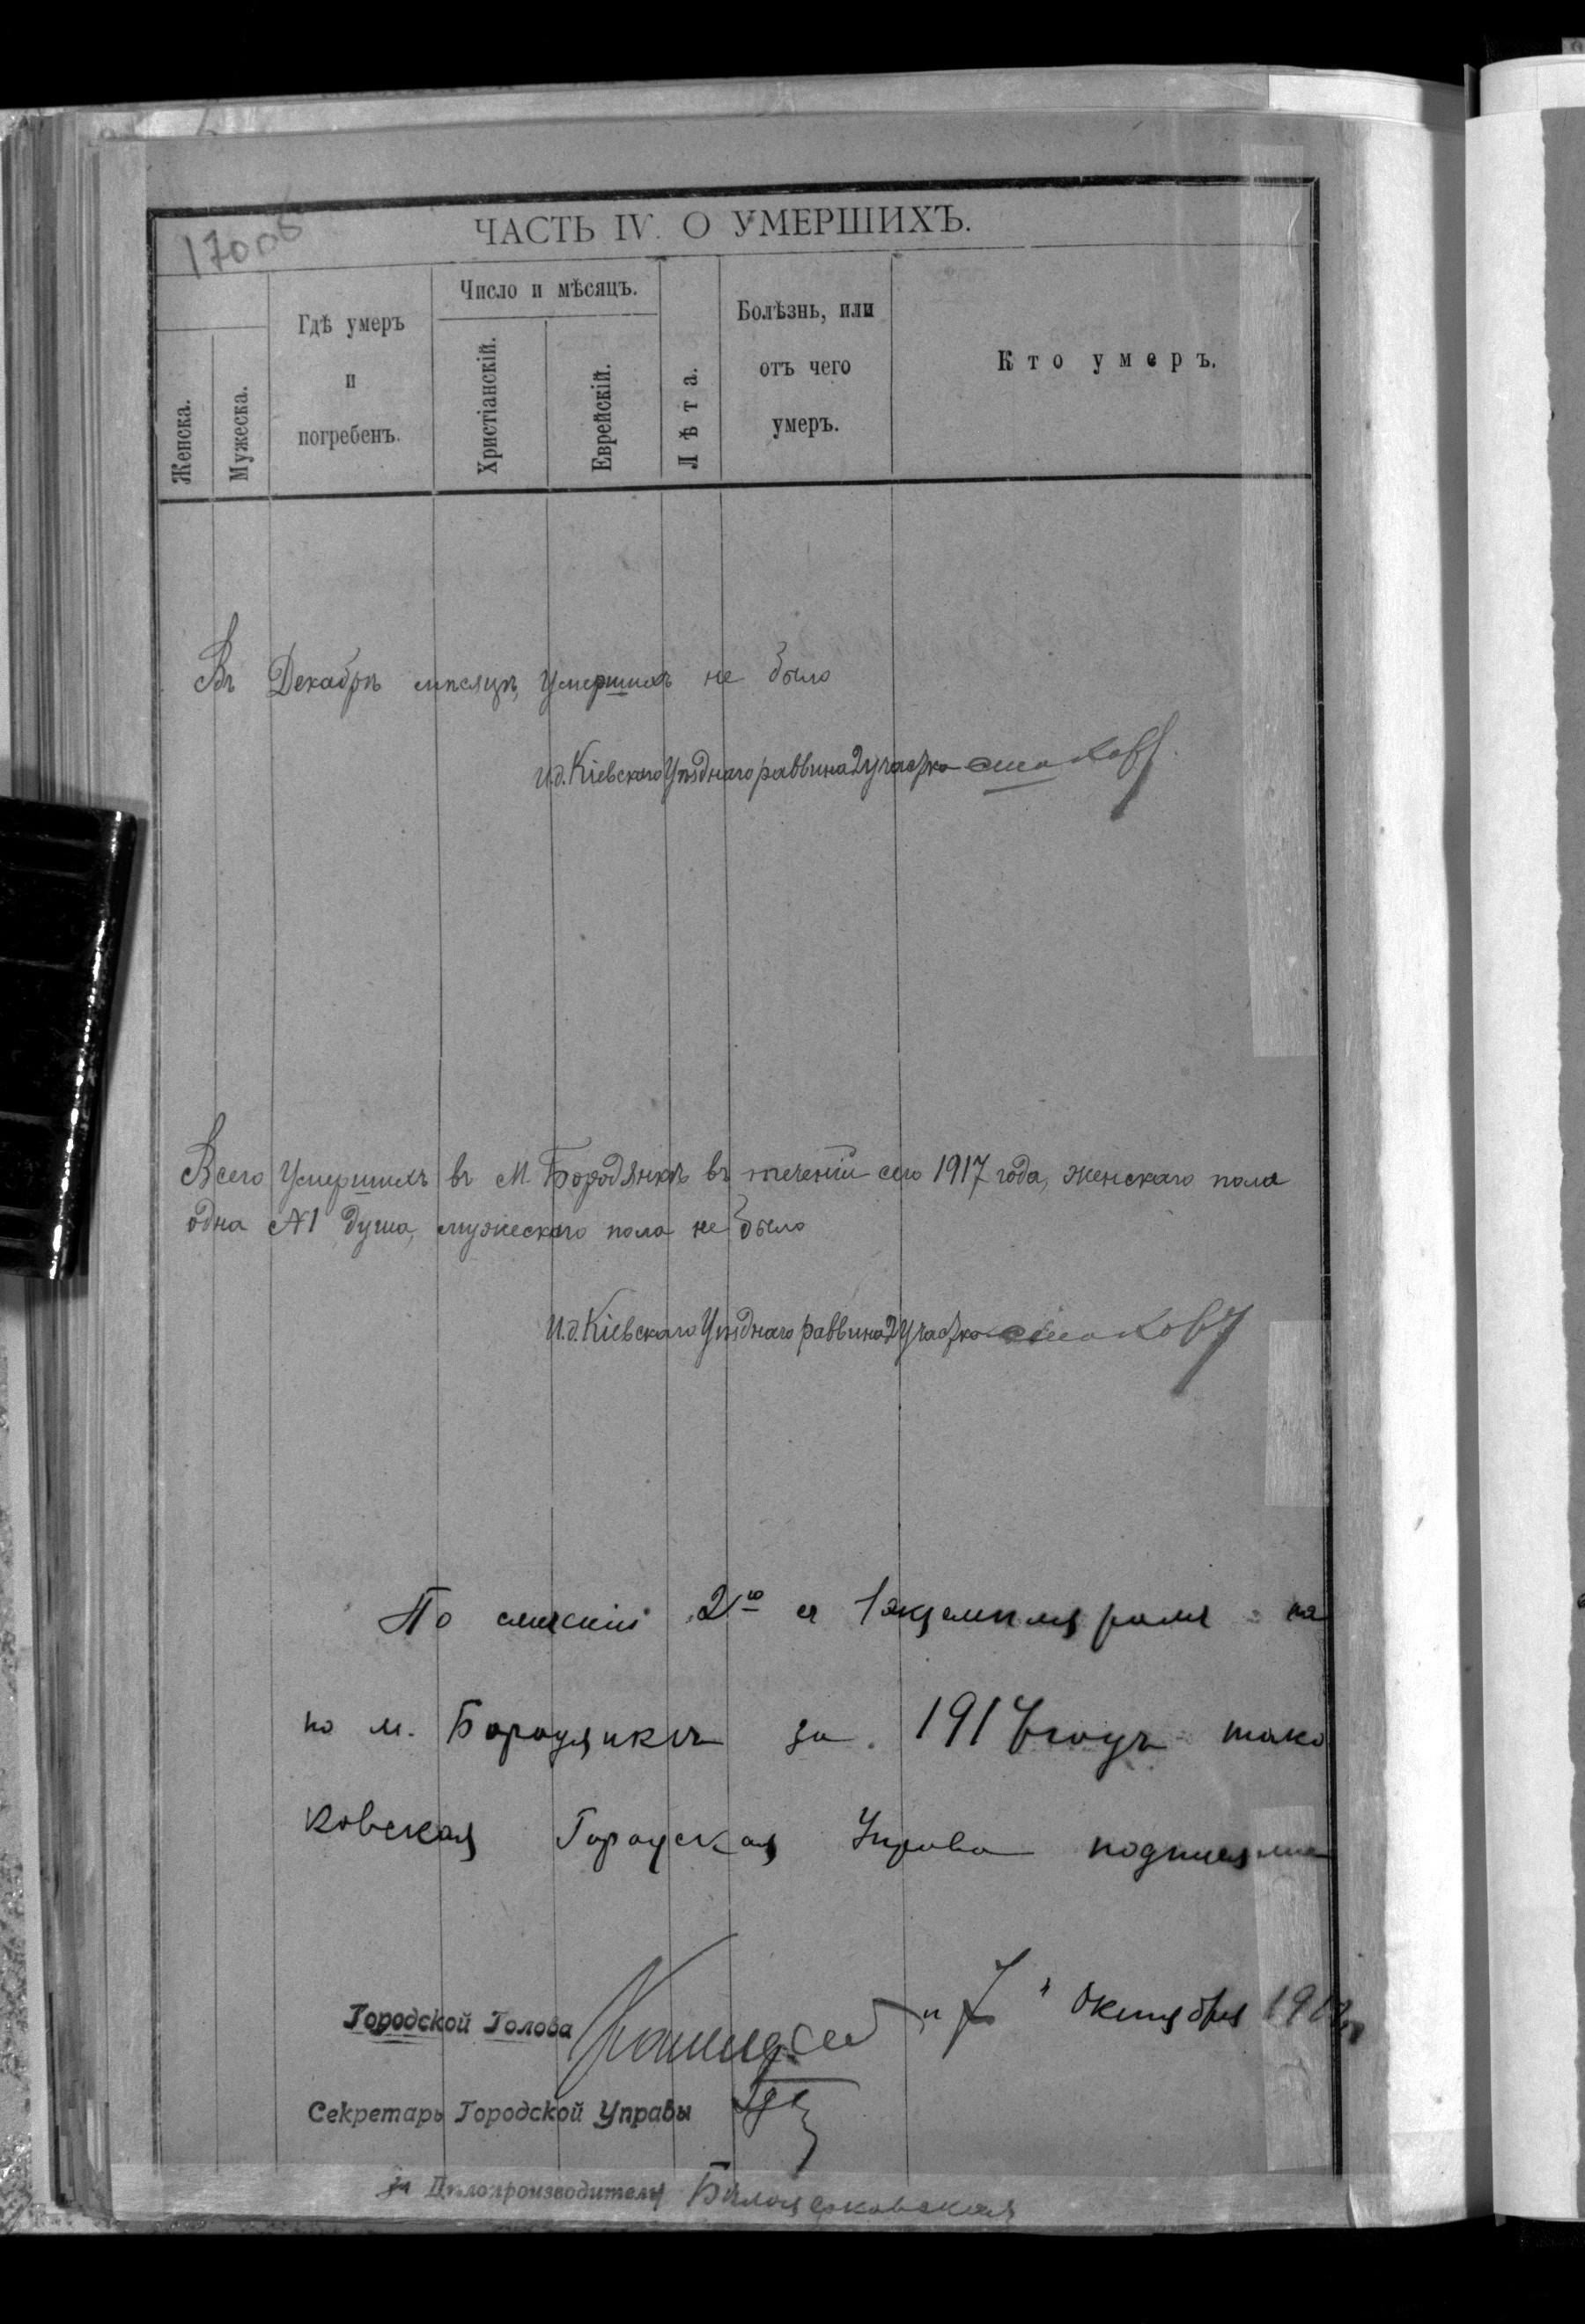 17006
ЧАСТЬ IV. О УМЕРШИХЪ.
Женска.
Мужеска.
Гдѣ умеръ
и
погребенъ.
Число и мѣсяцъ.
Христіанскій.
Еврейскій.
Лѣта.
Болѣзнь, или
отъ чего
умеръ.
Кто умеръ.
Въ Декабрѣ мѣсяцѣ, Умершихъ не было
И.д. Кіевскаго Уѣзднаго раввина 2 участка
Всего Умершихъ въ М. Бородянкѣ въ теченіи сего 1917 года, женскаго пола
одна №1 душа, мужескаго пола не было
И.д. Кіевскаго Уѣзднаго раввина 2 Участка
По сличеніи 2го съ 1 экземпляромъ
по м. Бородянкѣ за 1917 годъ
ковская Городская Управа
Городской Голова
"7" Октября
Секретарь Городской Управы
За Дѣлопроизводителя